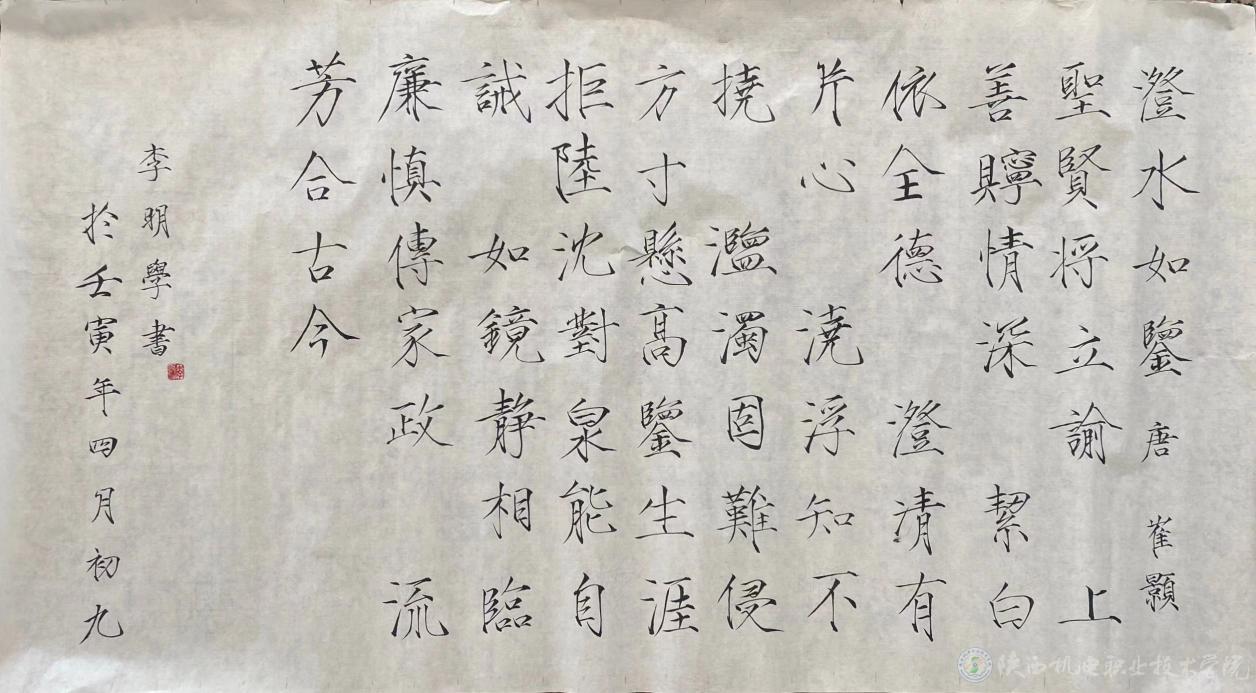 澄水如鑒 唐 崔顥
聖賢将立諭 上
善貯情深 絜白
依全德 澄清有
片心 澆浮知不
撓 濫濁固難侵
方寸懸高鑒生涯
拒陸沈對泉能自
誡 如鏡静相臨
廉慎傳家政 流
芳合古今
李明學書
於壬寅年四月初九
陕西机电职业技术学院